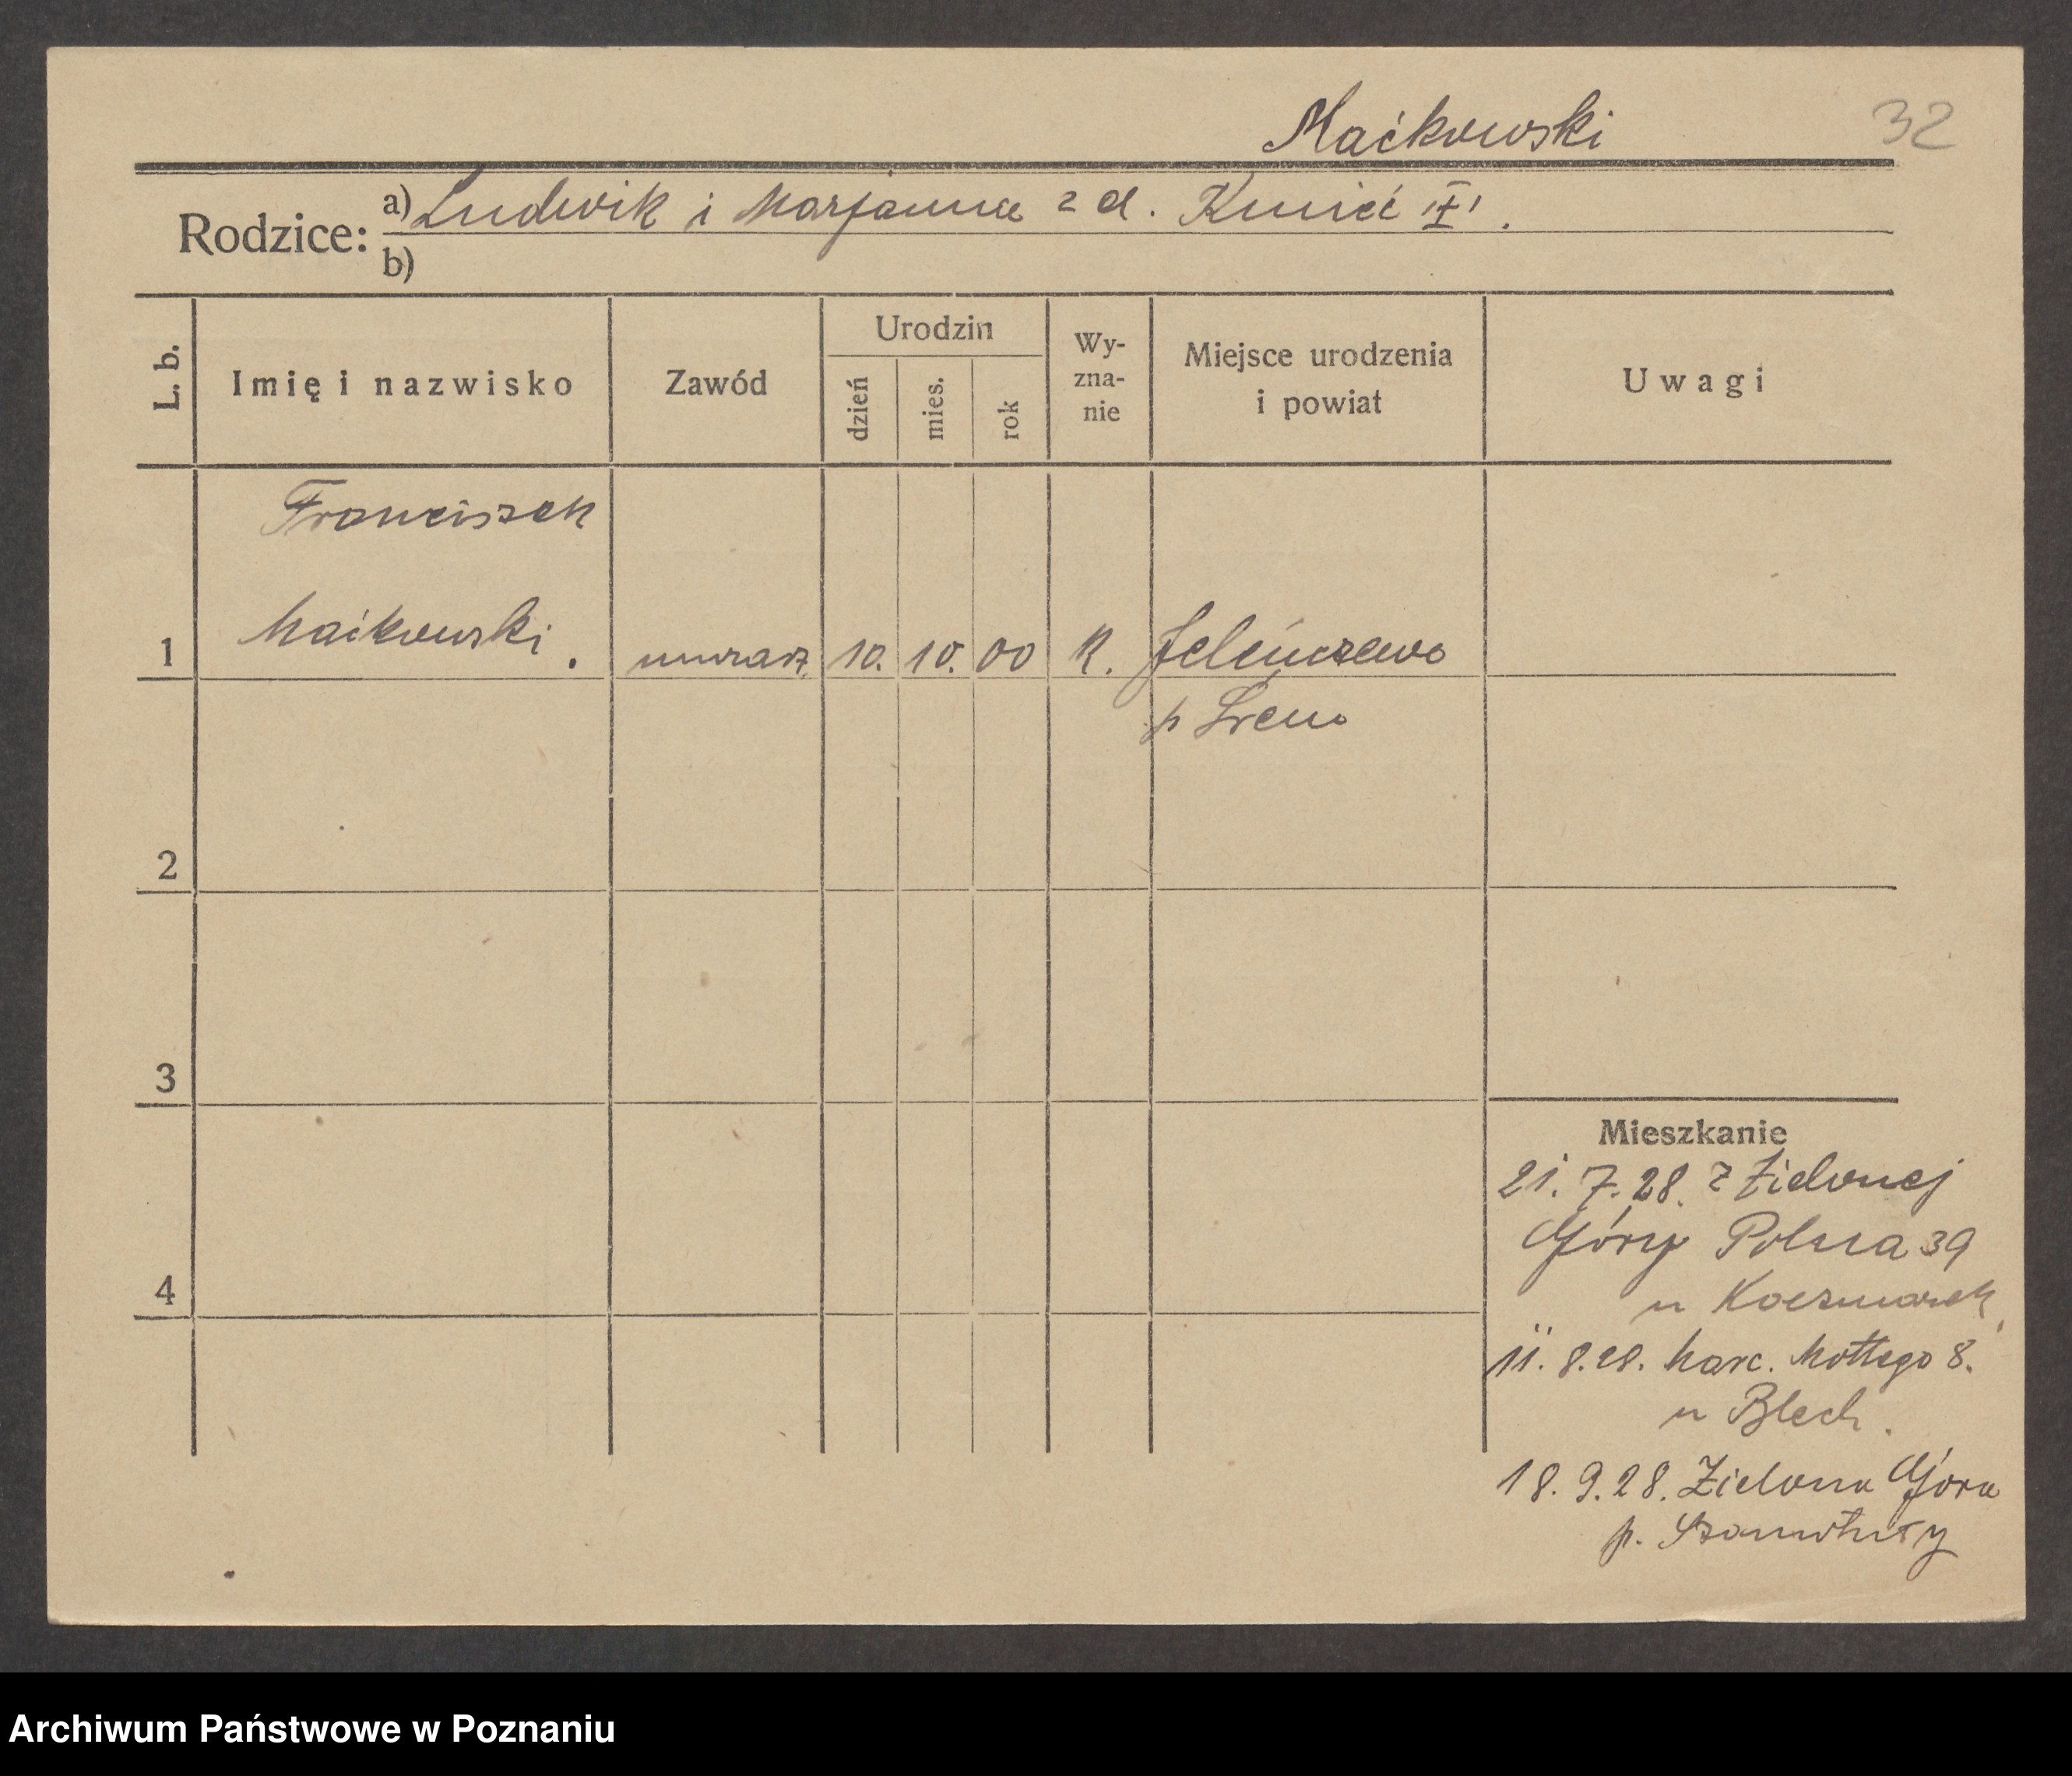 Maćkowski 32
Rodzice: a) Ludwik i Marjanna z d. Kmieć
b)
L. b. Imię i nazwisko Zawód Urodzin dzień mies. rok Wy-zna-nie Miejsce urodzenia i powiat Uwagi
Franciszek
1 Maćkowski. murarz 10. 10. 00 K. Jeleńczewo
p Śrem
2
3
Mieszkanie
21. 7. 28. z Zielonej
Góry Polna 39
4
u Kaczmarek
11. 8. 28. Marc. Mottego 8.
u Blech.
18. 9. 28. Zielona Góra
p. Szamotuły
Archiwum Państwowe w Poznaniu